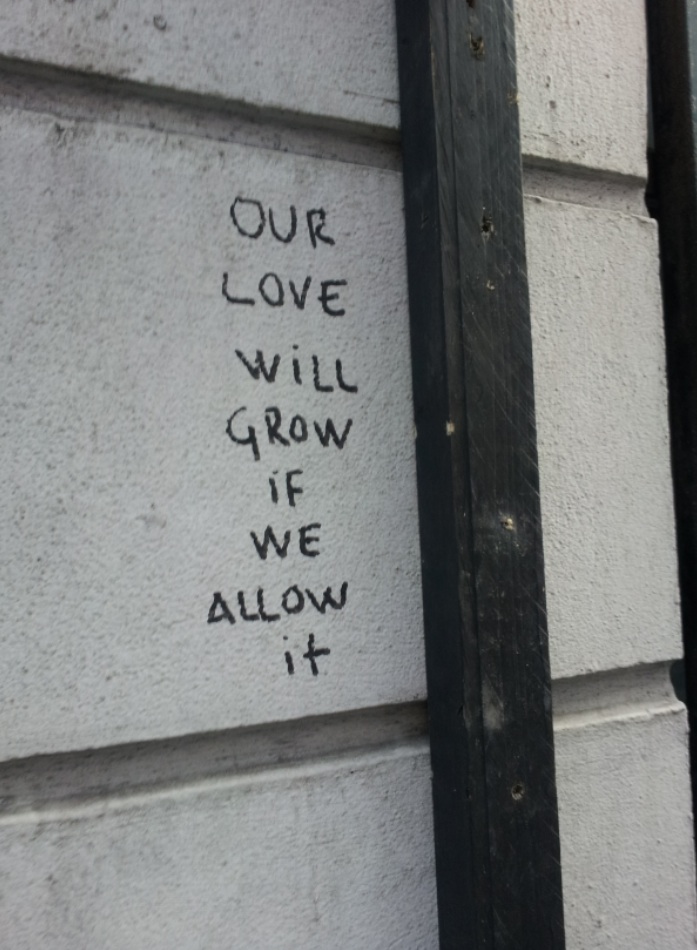 OUR
LOVE
WiLL
GROW
iF
WE
ALLOW
it